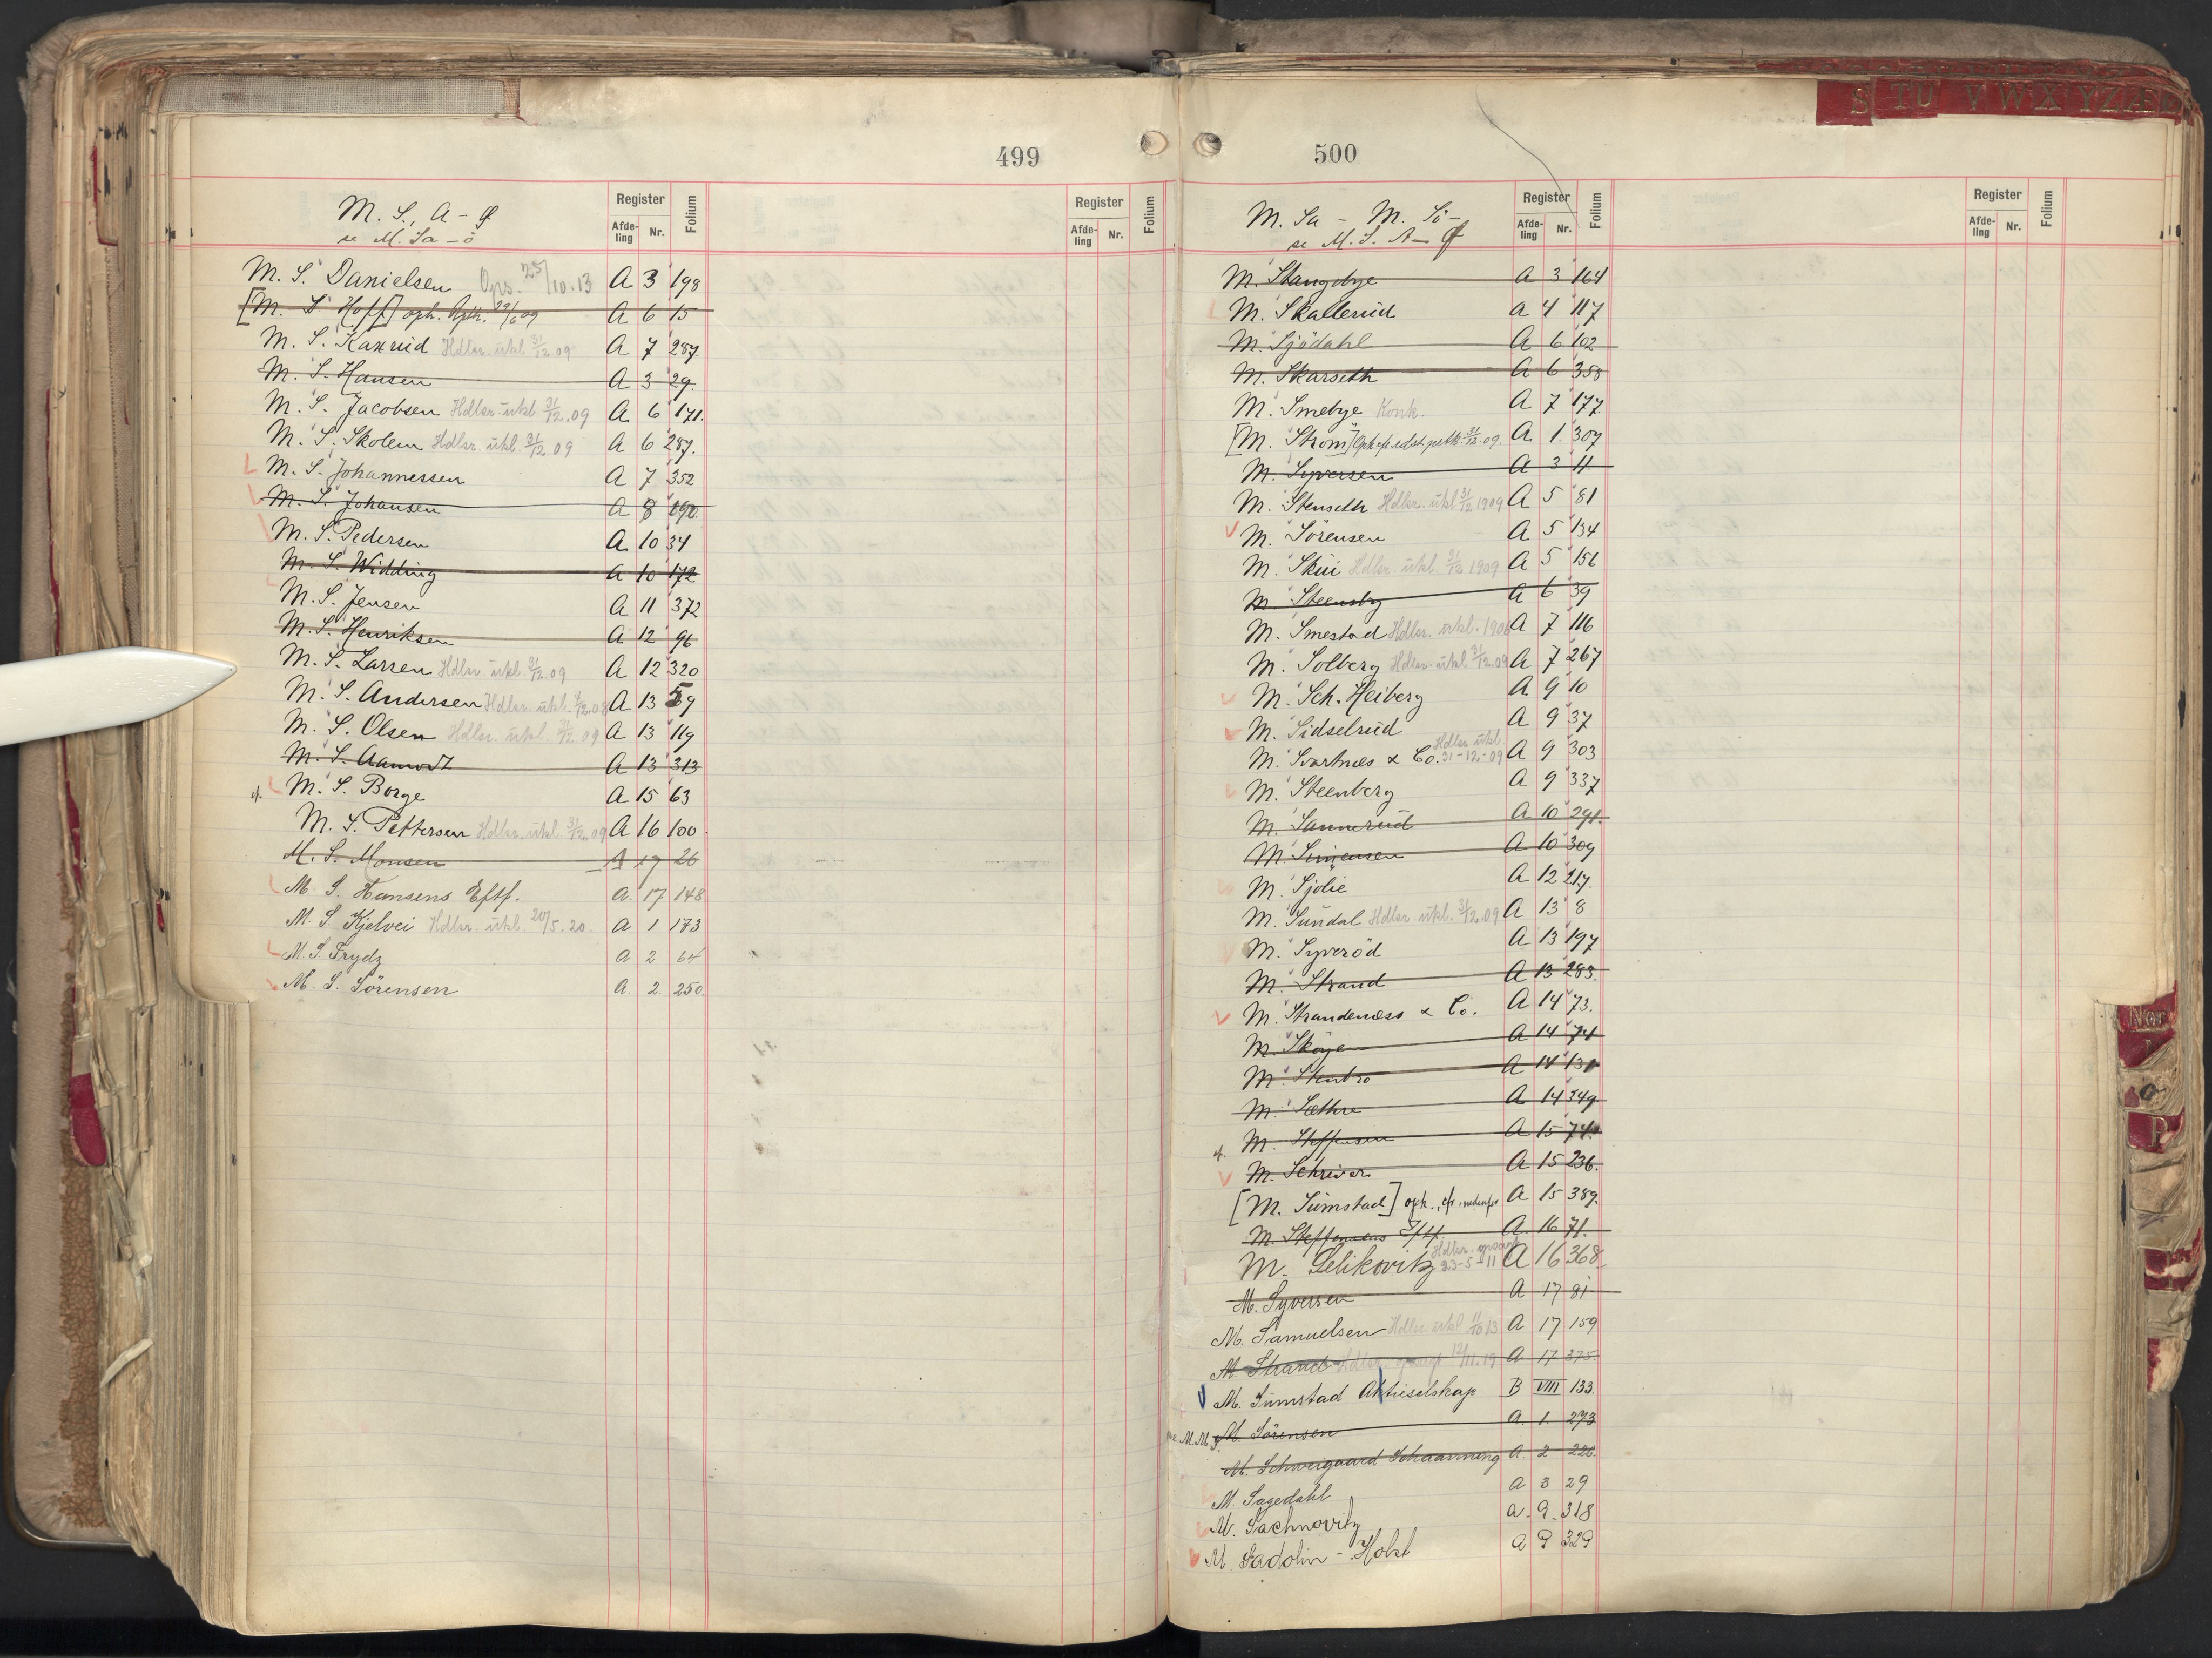 499
M. S., A - Ø
se M. Sa - ö
Register
Afde-ling Nr. Folium
Register
Afde-ling Nr. Folium
M. S. Danielsen Ops. 25/10.13 A 3 198
[M. S. Hoff] oph. 29/6 09 A 6 15
M. S. Kaxrud Hdlsr. ukl 31/12 09 A 7 287.
M. S. Hansen A 3 29.
M. S. Jacobsen Hdlsr. ukl 31/12.09 A 6 171.
M. S. Skolem Hdlsr. ukl. 31/12 09 A 6 287.
M. S. Johannessen A 7 352
M. S. Johansen A 8 190.
M. S. Pedersen A 10 34
M. S. Widding A 10 172
M. S. Jensen A 11 372
M. S. Henriksen A 12 96
M. S. Larsen Hdlsr. ukl. 31/12.09 A 12 320
M. S. Andersen Hdlsr. ukl. 08 A 13 59
M. S. Olsen Hdlsr. ukl. 31/12.09 A 13 119
M. S. Aamodt A 13 313
cf. M. S. Borge A 15 63
M. S. Pettersen Hdlsr. ukl. 31/12.09 A 16 100.
M. S. Monsen A 17 26
M. S. Hansens Eftf. A. 17 148
M. S. Kjelvei Hdlsr. ukl. 20/5.20. A 1 173
M. S. Frydz A 2 64
M. S. Sörensen A. 2. 250.
500
S TU V W X Y Z Æ
M. Sa - M. Sö -
se M. S. A - Ø
Register
Afde-ling Nr. Folium
Register
Afde-ling Nr. Folium
M. Stangebye A 3 164
M. Skallerud A 4 117
M. Sjödahl A 6 102
M. Skarseth A 6 358
M. Smebye Konk. A 7 177.
[M. Strom] Oph. 31/12.09. A 1. 307
M. Syversen A 3 11
M. Stenseth Hdlsr. ukl 31/12 1909 A 5 81
M. Sörensen A 5 134
M. Skui Hdlsr. ukl. 31/12 1909 A 5 156
M. Steensby A 6 39
M. Smestad Hdlsr. ukl. 1906 A 7 116
M. Solberg Hdlsr. ukl 31/12.09 A 7 267
M. Sch. Heiberg A 9 10
M. Sidselrud A 9 37
M. Svartnæs & Co. Hdlsr ukl 31-12-09 A 9 303
M. Steenberg A 9 337
M. Sannerud A 10 291.
M. Simensen A 10 309
M. Sjölie A 12 217.
M. Sundal Hdlsr. ukl. 31/12.09 A 13 8
M. Syveröd A 13 197
M. Strand A 13 283.
M. Strandenæss & Co. A 14 73.
M. Sköyen A 14 74
M. Stenbro A 14 131
M. Sæthre A 14 349
cf. M. Steffensen A 15 74.
M. Schriver A 15 236.
[M. Sumstad] oph., cfr. nedenfor A 15 389.
M. Steffensens Eftf. A. 16 71.
M. Selikovitz Hdlsr. opsagt 23-5-11 A 16 368
M. Syversen A 17 81
M. Samuelsen Hdlsr ukl 1/10 13 A 17 159
M. Strand Hdlsr. opsagt 12/11.19 A 17 375.
M. Sumstad Aktieselskap B VIII 133
se M. M. S. M. Sörensen A. 1. 273
M. Schweigaard Johanning A 2 226.
M. Sagedahl A 3 29
M. Sachnovitz A. 9. 318
M. Sadolin - Holst A 9 329
Nor
O
P